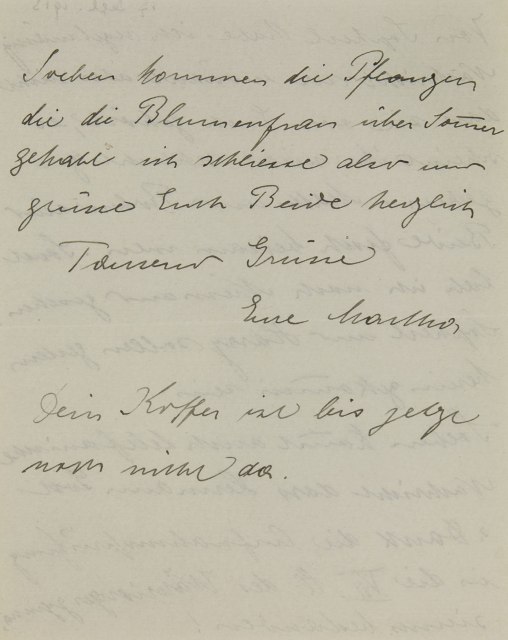 Soeben kommen die Pflanzen
die die Blumenfrau über Somer
gehabt ich schliesse also und
grüsse Euch Beide herzlich
Tausend Grüsse
Eure Martha
Dein Koffer ist bis jetzt
noch nicht da.